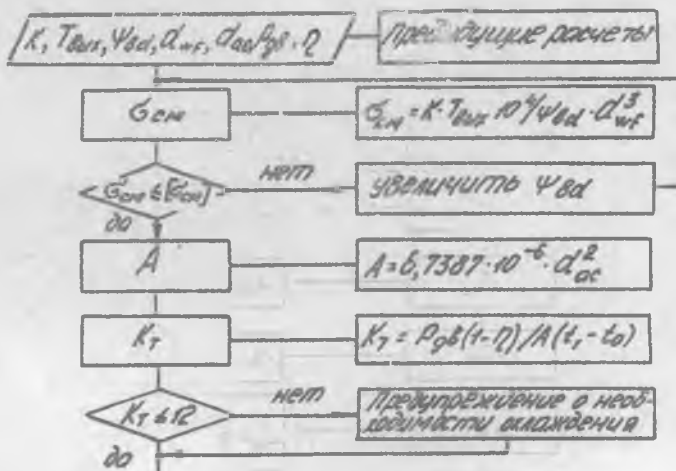 K, Tвых, Ψbd, dwf, dac, Pдв, η
Предыдущие расчеты
σсм
σсм = K·Tвых·10⁴/Ψbd·d³wf
нет
σсм ≤ [σсм]
увеличить Ψbd
да
A
A = 6,7387·10⁻⁶·d²ac
Kт
Kт = Pдв(1-η)/A(t₁-t₀)
нет
Предупреждение о необ-
ходимости охлаждения
Kт ≤ 12
да